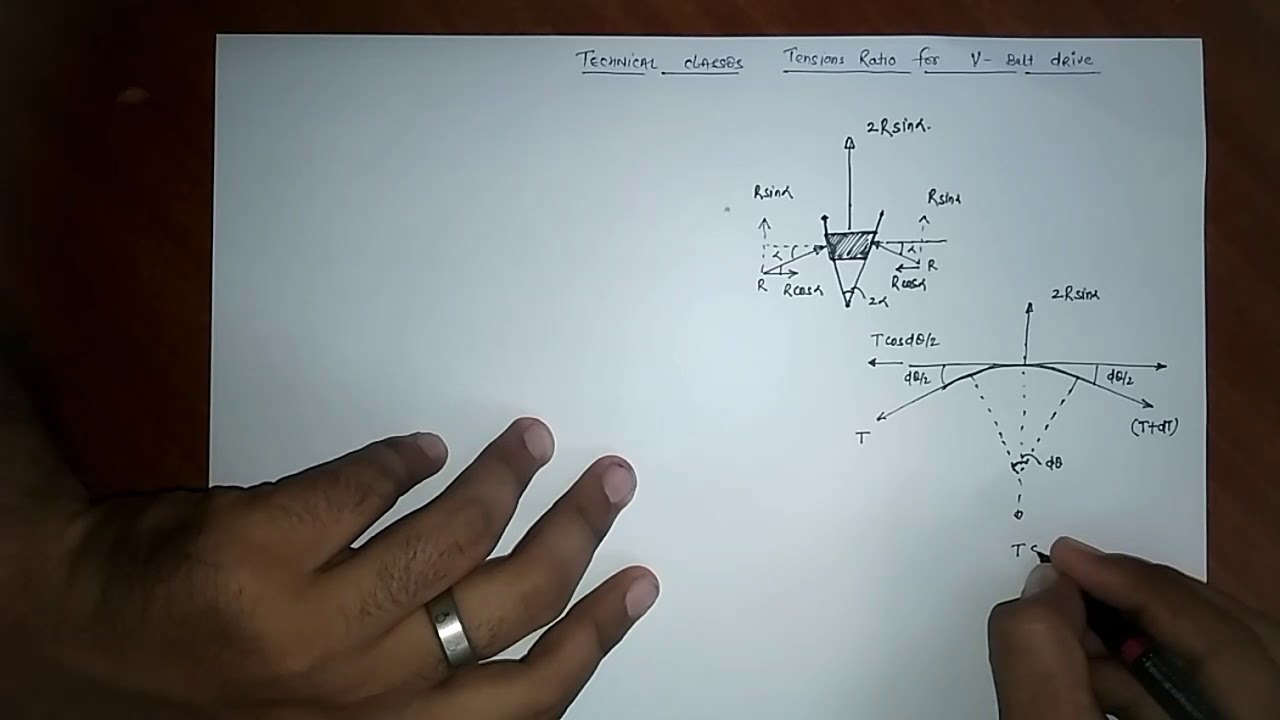 TECHNICAL CLASSES Tensions Ratio for V- Belt drive
2Rsinα.
Rsinα Rsinα
α α
R R
Rcosα Rcosα
2α
2Rsinα
Tcosdθ/2
dθ/2 dθ/2
T (T+dT)
dθ
T